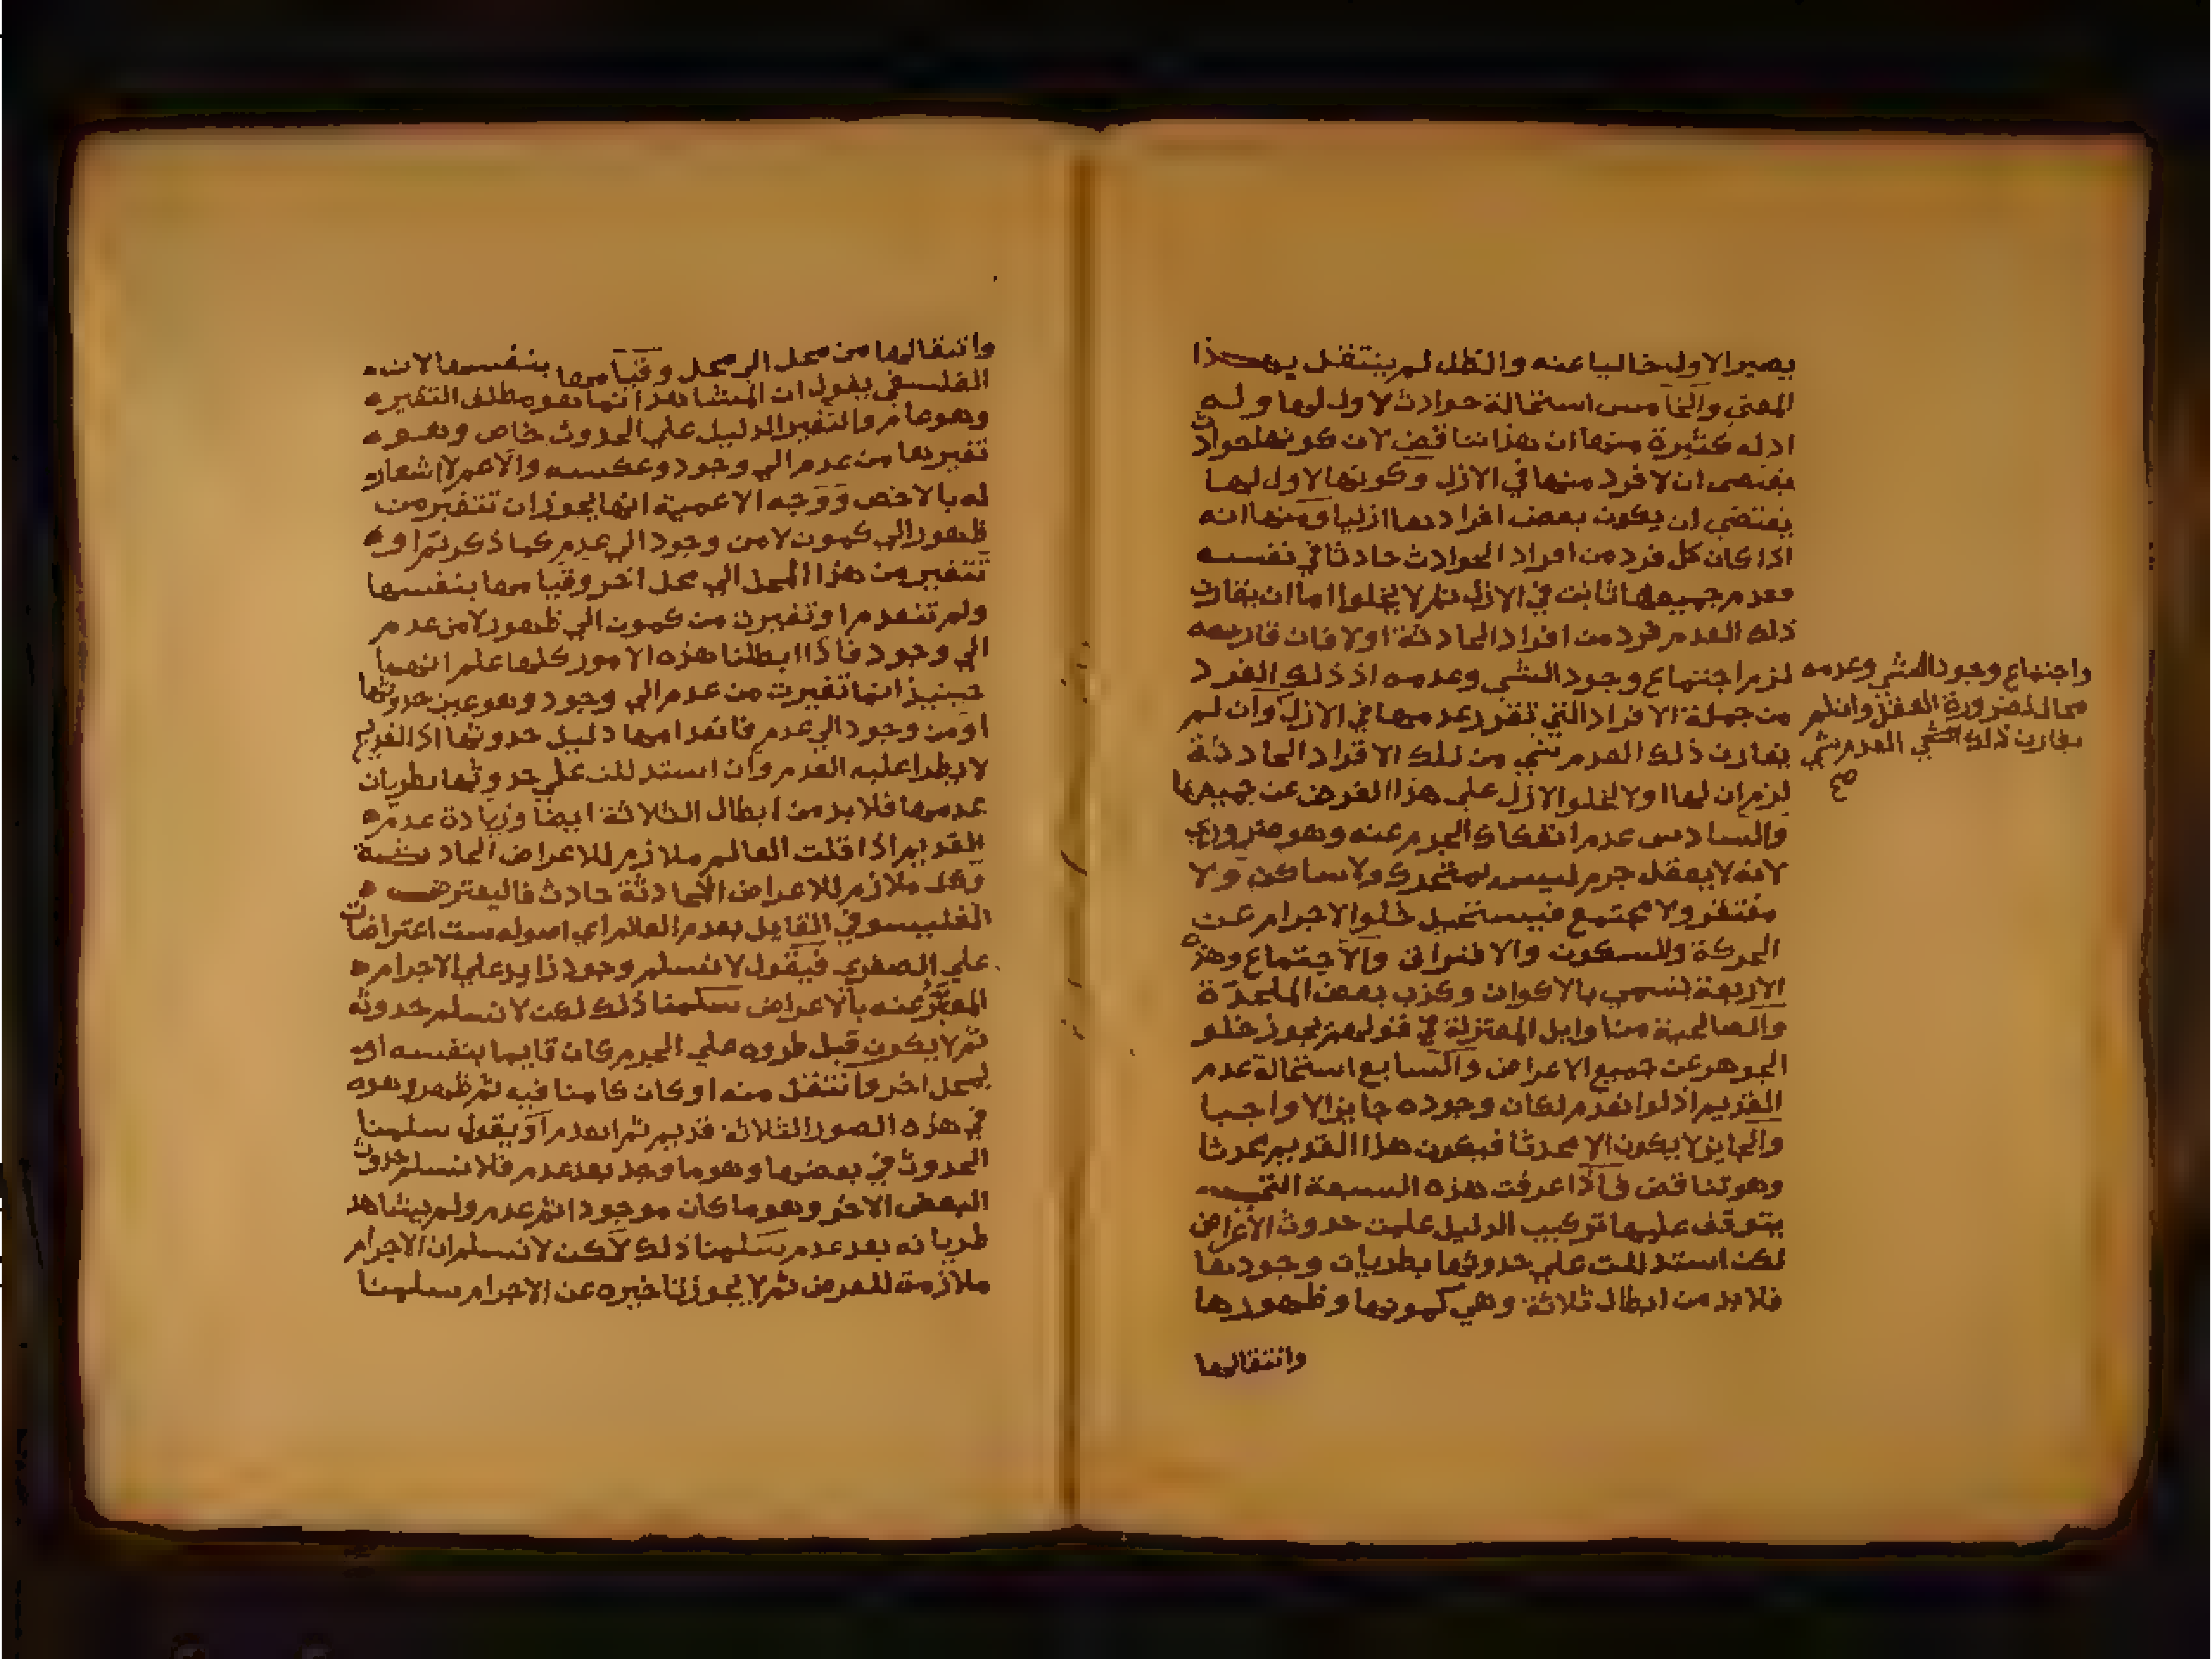 يصير الاول خاليا عنه والظل لم ينتقل بهذا
المعني والخامس استحالة حوادث لا اول لها وله
ادله كثيرة منها ان هذا تناقض لان كونها حوادث
يقتضي ان لا فرد منها في الازل وكونها لا اول لها
يقتضي ان يكون بعض افرادها ازليا ومنها انه
اذا كان كل فرد من افراد الحوادث حادثا في نفسه
فعدم جميعها ثابت في الازل ثم لا يخلوا اما ان يقارن
ذلك العدم فرد من افراد الحادثة اولا فان قارنه
لزم اجتماع وجود الشي وعدمه اذ ذلك الفرد
من جملة الافراد التي تقرر عدمها في الازل وان لم
يقارن ذلك العدم شي من تلك الافراد الحادثة
لزم ان لها اولا لخلو الازل علي هذا الفرض عن جميعها
والسادس عدم انفكاك الجرم عنه وهو ضروري
لانه لا يعقل جرم ليس بمتحرك ولا ساكن ولا
مفتقر ولا مجتمع فيستحيل خلوا الاجرام عن
الحركة والسكون والافتراق والاجتماع وهذه
الاربعة تسمي بالاكوان وكذب بعض الملحدة
والصالحية من اوايل المعتزلة في قولهم يجوز خلو
الجوهر عن جميع الاعراض والسابع استحالة عدم
القديم اذ لو انعدم لكان وجوده جايزا لا واجبا
والجايز لا يكون الا محدثا فيكون هذا القديم محدثا
وهو تناقض فاذا عرفت هذه السبعة التي
يتوقف عليها تركيب الدليل علمت حدوث الاعراض
لكن استدللت علي حدوثها بطريان وجودها
فلا بد من ابطال ثلاثة وهي كمونها وظهورها
وانتقالها
واجتماع وجود الشي وعدمه
محال لضرورة العقل وان لم
يقارن ذلك الشي العدم شي
صح
وانتقالها من محل الي محل وقيامها بنفسها لان
الفلسفي يقول ان المشاهد انما هو مطلق التغير
وهو عام والتغير الدليل علي الحدوث خاص وهو
تغيرها من عدم الي وجود وعكسه والاعم لا اشعار
له بالاخص ووجه الاعمية انها يجوز ان تتغير من
ظهور الي كمون لا من وجود الي عدم كما ذكرتم او
تتغير من هذا المحل الي محل اخر وقيامها بنفسها
ولم تنعدم او تغيرت من كمون الي ظهور لا من عدم
الي وجود فاذا ابطلنا هذه الامور كلها علم انها
حينيذ انما تغيرت من عدم الي وجود وهو عين حدوثها
او من وجود الي عدم فانعدامها دليل حدوثها اذ القديم
لا يطرا عليه العدم وان استدللت علي حدوثها بطريان
عدمها فلا بد من ابطال الثلاثة ايضا وزيادة عدم
القديم اذا قلت العالم ملازم للاعراض الحادثة
وكل ملازم للاعراض الحادثة حادث فاليعترض
الفليسوفي القايل بعدم العالم اي اصوله ست اعتراضات
علي الصغري فيقول لا نسلم وجود زايد علي الاجرام
المعبر عنه بالاعراض سلمنا ذلك لكن لا نسلم حدوثه
ثم لا يكون قبل طروه علي الجرم كان قايما بنفسه او
بمحل اخر وانتقل منه او كان كامنا فيه ثم ظهر وهو
في هذه الصور الثلاثة قديم ثم انعدم او يقول سلمنا
الحدوث في بعضها وهو ما وجد بعد عدم فلا نسلم حدوث
البعض الاخر وهو ما كان موجودا ثم عدم ولم يشاهد
طريانه بعد عدم سلمنا ذلك لكن لا نسلم ان الاجرام
ملازمة للعرض ثم لا يجوز تاخيره عن الاجرام سلمنا